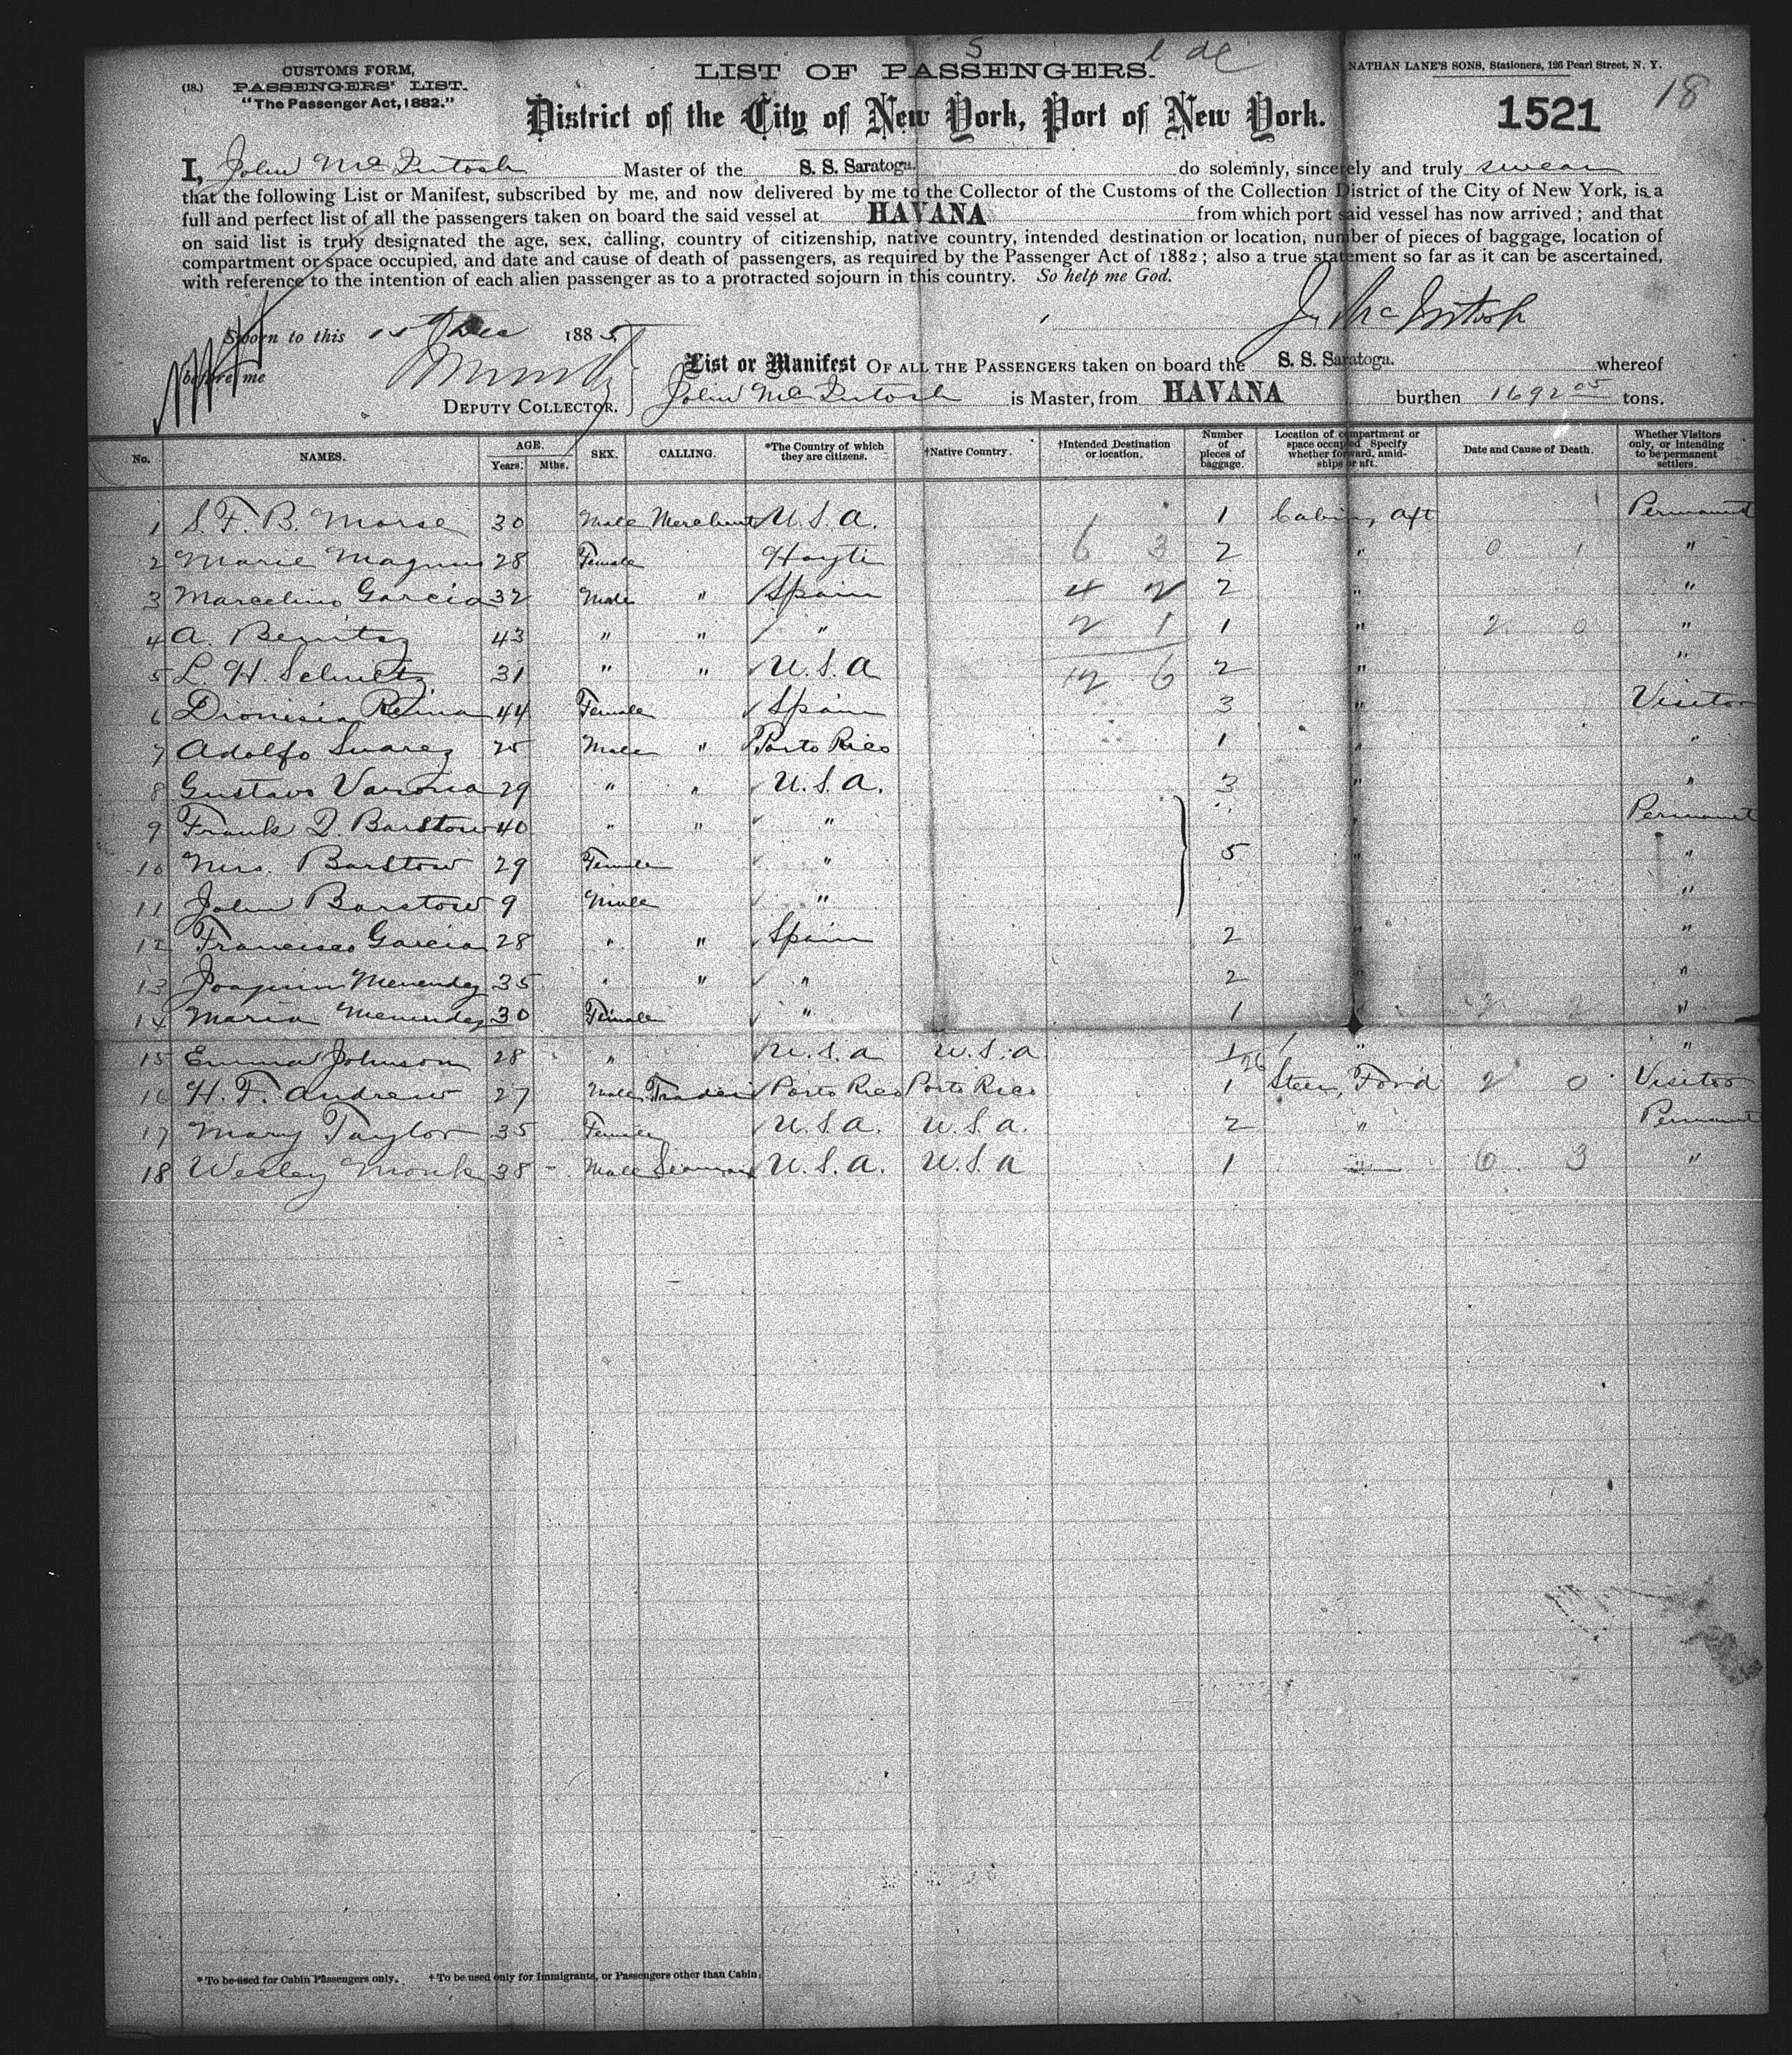 S l de
CUSTOMS FORM,
(18.) PASSENGERS' LIST.
"The Passenger Act, 1882."
LIST OF PASSENGERS.
NATHAN LANE'S SONS, Stationers, 126 Pearl Street, N. Y.
District of the City of New York, Port of New York.
1521 18
I, John McIntosh Master of the S. S. Saratoga. do solemnly, sincerely and truly swear
that the following List or Manifest, subscribed by me, and now delivered by me to the Collector of the Customs of the Collection District of the City of New York, is a
full and perfect list of all the passengers taken on board the said vessel at HAVANA from which port said vessel has now arrived; and that
on said list is truly designated the age, sex, calling, country of citizenship, native country, intended destination or location, number of pieces of baggage, location of
compartment or space occupied, and date and cause of death of passengers, as required by the Passenger Act of 1882; also a true statement so far as it can be ascertained,
with reference to the intention of each alien passenger as to a protracted sojourn in this country. So help me God.
J. McIntosh
Sworn to this 15 Dec 1885
before me
DEPUTY COLLECTOR.
List or Manifest OF ALL THE PASSENGERS taken on board the S. S. Saratoga. whereof
John McIntosh is Master, from HAVANA burthen 1692 05 tons.
No. NAMES. AGE. Years. Mths. SEX. CALLING. *The Country of which they are citizens. †Native Country. †Intended Destination or location. Number of pieces of baggage. Location of compartment or space occupied Specify whether forward, amidships or aft. Date and Cause of Death. Whether Visitors only, or Intending to be permanent settlers.
1 S. F. B. Morse 30 Male Merchant U. S. A. 1 1 Cabin, aft Permanent
2 Marie Magnus 28 Female Hayti 6 3 2 " 0 1 "
3 Marcelino Garcia 32 Male " Spain 4 2 2 " "
4 A. Benitez 43 " " " 2 1 1 " 2 0 "
5 L. H. Schultz 31 " " U. S. A 12 6 2 " "
6 Dionisia Reina 44 Female Spain 3 " Visitor
7 Adolfo Suarez 25 Male " Porto Rico 1 " "
8 Gustavo Varona 29 " " U. S. A. 3 " "
9 Frank Q. Barstow 40 " " " " Permanent
10 Mrs. Barstow 29 Female " 5 " "
11 John Barstow 9 Male " "
12 Francisco Garcia 28 " " Spain 2 " "
13 Joaquin Menendez 35 " " " 2 " "
14 Maria Menendez 30 Female " 1 2 2 "
15 Emma Johnson 28 " U. S. A U. S. A 1 " "
26
16 H. F. Andrew 27 Male Trader Porto Rico Porto Rico 1 Steer, For'd 2 0 Visitor
17 Mary Taylor 35 Female U. S. A. U. S. A. 2 " Permanent
18 Wesley Monk 38 - Male Seaman U. S. A. U. S. A 1 " 6 3 "
* To be used for Cabin Passengers only. † To be used only for Immigrants, or Passengers other than Cabin.